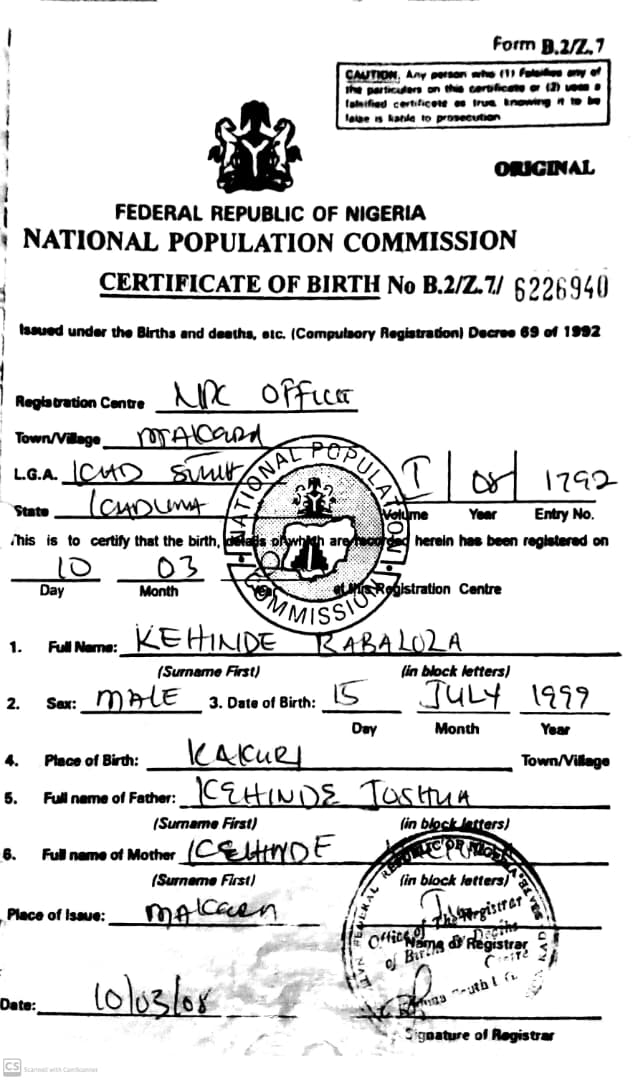 Form B.2/Z.7
CAUTION. Any person who (1) Falsifies any of
the particulars on this certificate or (2) uses a
falsified certificate as true, knowing it to be
false is liable to prosecution
ORIGINAL
FEDERAL REPUBLIC OF NIGERIA
NATIONAL POPULATION COMMISSION
CERTIFICATE OF BIRTH No B.2/Z.7/ 6226940
Issued under the Births and deaths, etc. (Compulsory Registration) Decree 69 of 1992
Registration Centre NPC OFFICE
Town/Village MAKERA
L.G.A. KAD SOUTH I 08 1792
State KADUNA Volume Year Entry No.
NATIONAL POPULATION COMMISSION
This is to certify that the birth, details of which are recorded herein has been registered on
10 03
Day Month Year at this Registration Centre
1. Full Name: KEHINDE
(Surname First) (in block letters)
2. Sex: MALE 3. Date of Birth: 15 JULY 1999
Day Month Year
4. Place of Birth: KAKURI Town/Village
5. Full name of Father: KEHINDE JOSHUA
(Surname First) (in block letters)
6. Full name of Mother KEHINDE
(Surname First) (in block letters)
Place of Issue: MAKERA
The Registrar
Office of
Name of Registrar
of Births Deaths
Centre
Date: 10/03/08
Signature of Registrar
CS Scanned with CamScanner